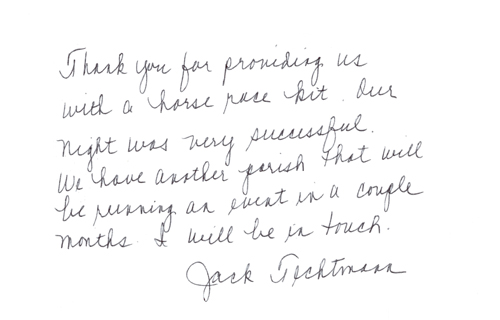 Thank you for providing us
with a horse race kit. Our
night was very successful.
We have another parish that will
be running an event in a couple
months. I will be in touch.
Jack Techtmann